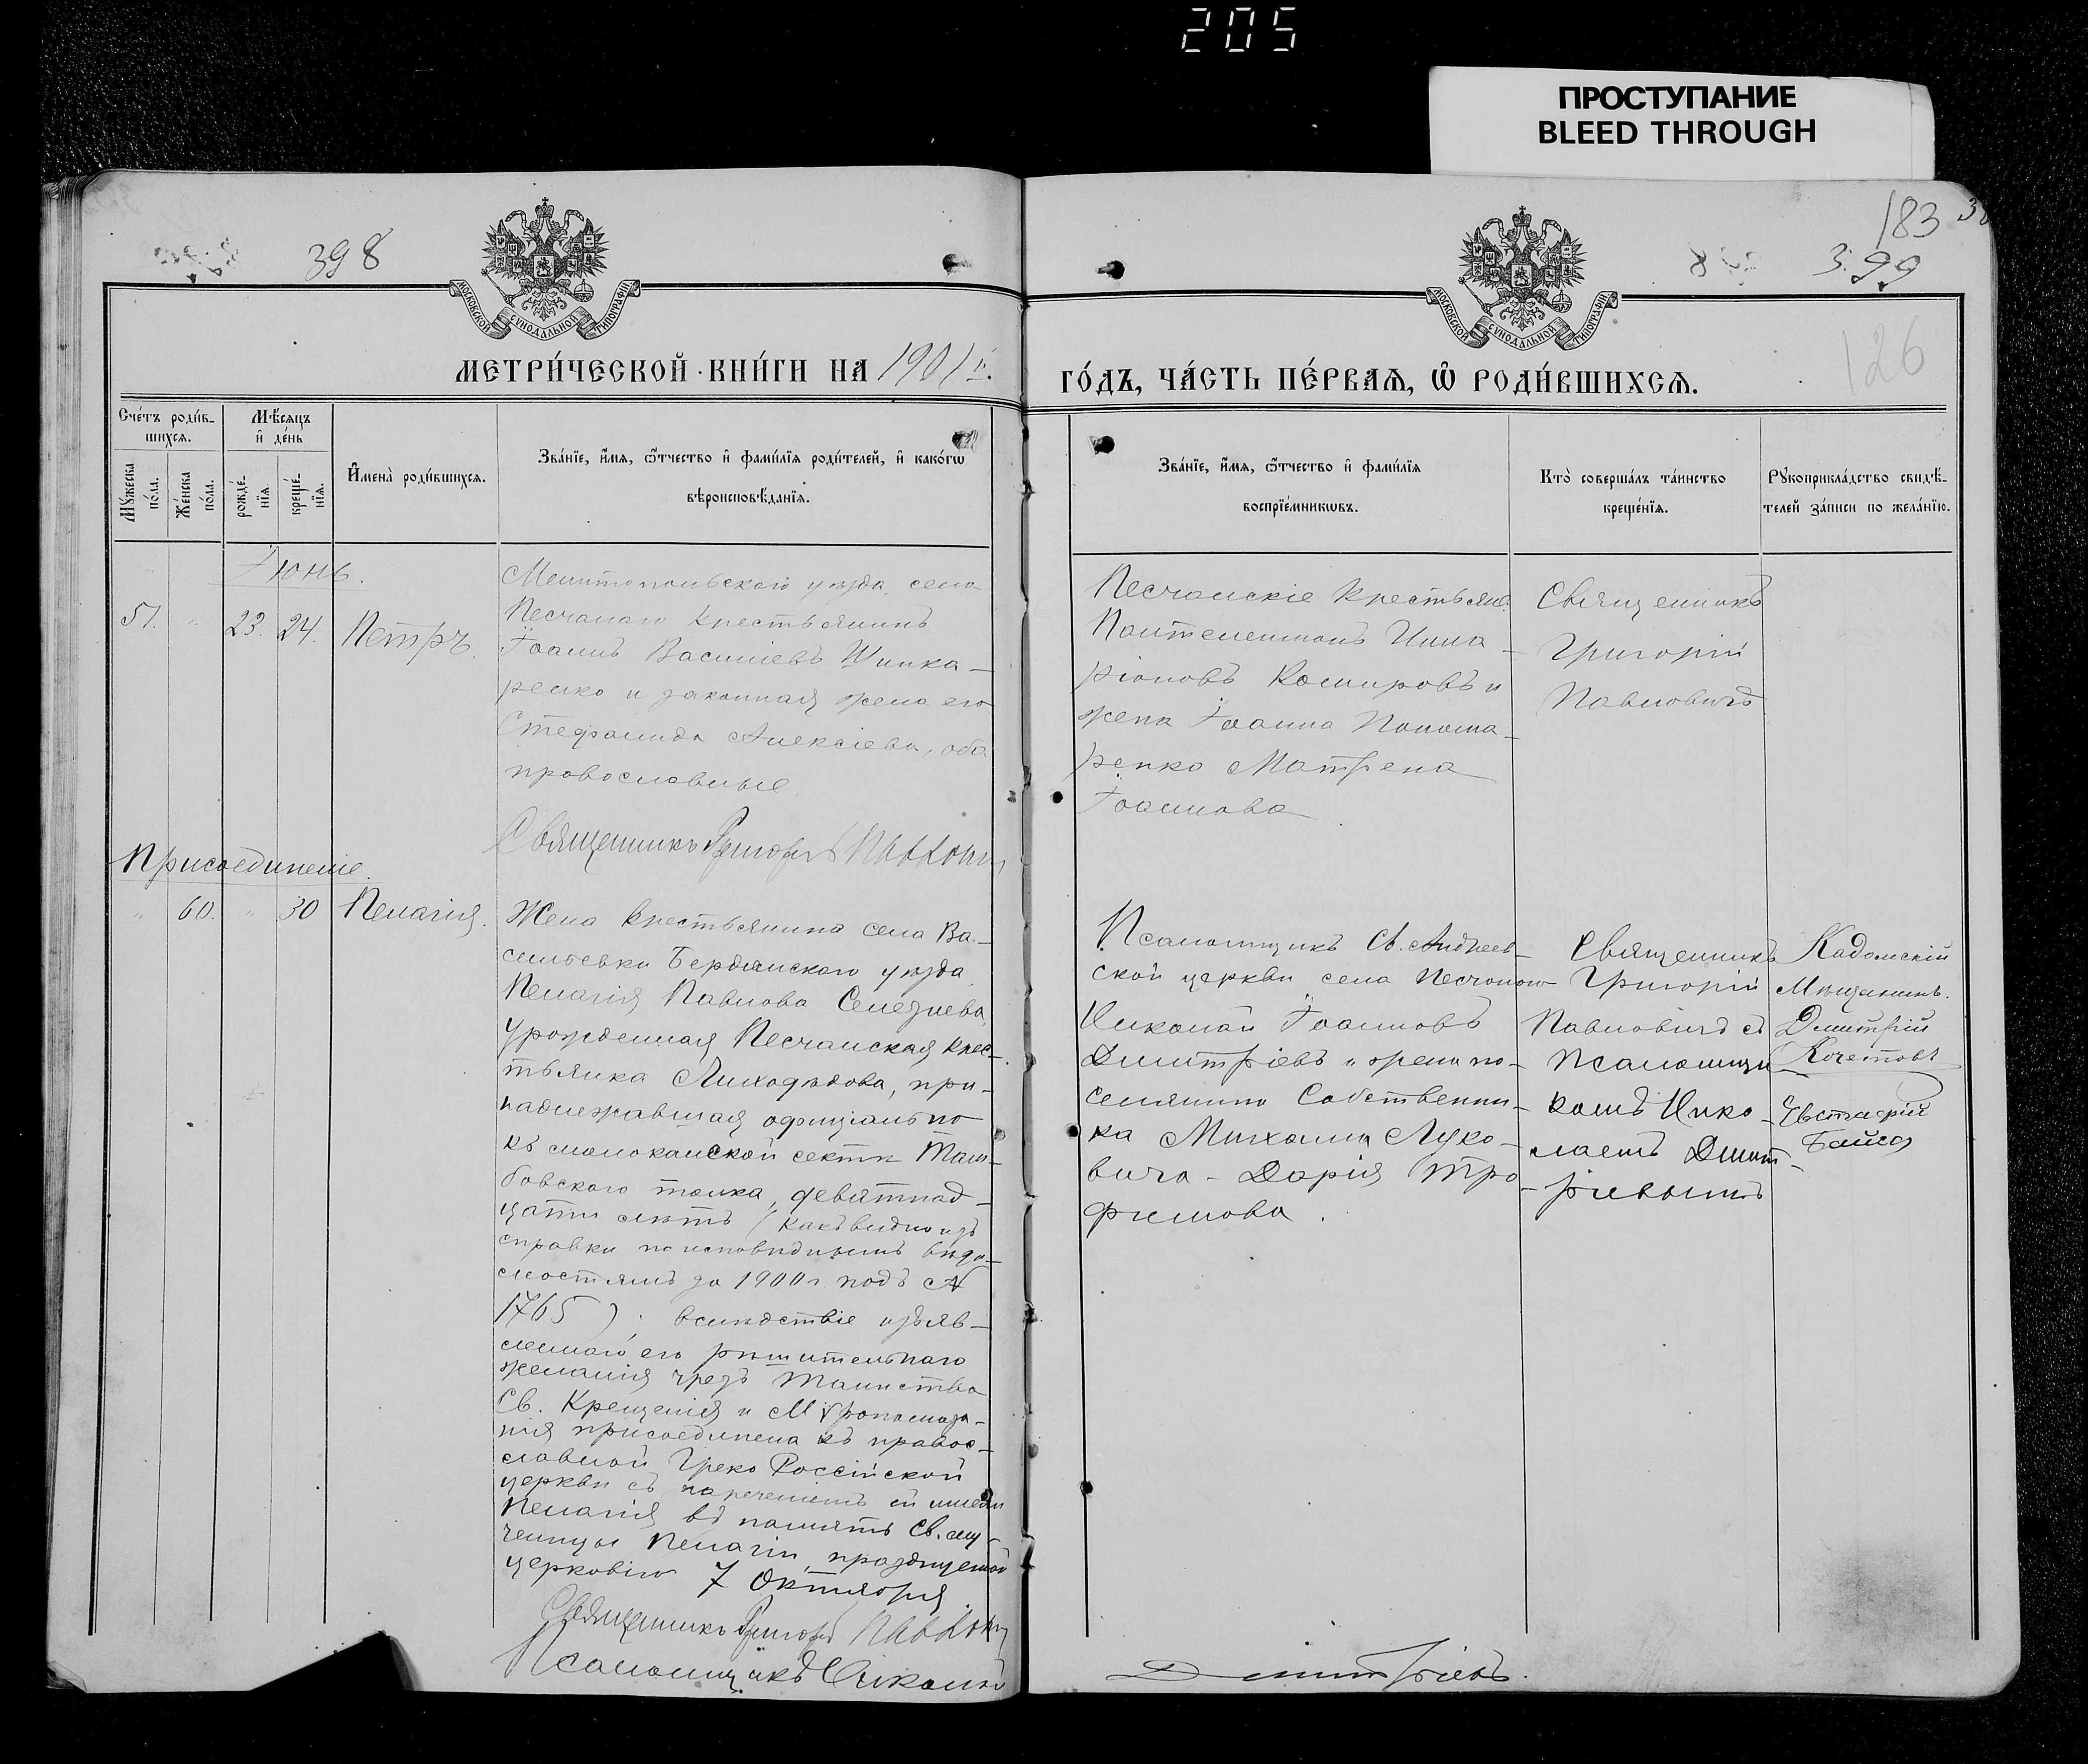 205
ПРОСТУПАНИЕ
BLEED THROUGH
398
183
399
126
МОСКОВСКОЙ СУНОДАЛЬНОЙ ТИПОГРАФІИ
МОСКОВСКОЙ СУНОДАЛЬНОЙ ТИПОГРАФІИ
МЕТРИ́ЧЕСКОЙ КНИ́ГИ НА 1901 й.
ГО́ДЪ, ЧА́СТЬ ПЕ́РВАѦ, Ѡ҆ РОДИ́ВШИХСѦ.
Сче́тъ роди́в-
шихсѧ.
Мѣ́сѧцъ
и҆ де́нь
Мꙋ́жеска
по́ла.
Же́нска
по́ла.
рожде́-
нїѧ.
креще́-
нїѧ.
И҆мена̀ роди́вшихсѧ.
Зва́нїе, и҆́мѧ, ѻ҆́тчество и҆ фами́лїѧ роди́телей, и҆ како́гѡ
вѣроисповѣ́данїѧ.
Зва́нїе, и҆́мѧ, ѻ҆́тчество и҆ фами́лїѧ
воспрїе́мникѡвъ.
Кто̀ соверша́лъ та́инство
креще́нїѧ.
Рꙋкоприкла́дство свидѣ́-
телей за́писи по жела́нїю.
Іюнь.
51. " 23. 24. Петръ.
Мелитопольскаго уѣзда села
Песчанаго крестьянинъ
Іоаннъ Василіевъ Шинка-
ренко и законная жена его
Стефанида Алексіева, оба
православные
Священникъ Григорій Павловичъ
Песчанскіе крестьяне
Пантелеимонъ Илла-
ріоновъ Комировъ и
жена Іоанна Понома-
ренко Матрена
Іоаннова
Священникъ
Григорій
Павловичъ
Присоединеніе.
" 60. " 30 Пелагія.
Жена крестьянина села Ва-
сильевки Бердянскаго уѣзда
Пелагія Павлова Селезнева,
урожденная Песчанская крес-
тьянка Лиходѣдова, при-
надлежавшая офиціально
къ молоканской сектѣ Там-
бовскаго толка, девятнад-
цати лѣтъ (какъ видно изъ
справки по исповѣднымъ вѣдо-
мостямъ за 1900 г. подъ №
1765), вслѣдствіе изъяв-
леннаго ею рѣшительнаго
желанія чрезъ таинства
Св. Крещенія и Мѵропомаза-
нія присоединена къ правос-
лавной Греко Россійской
церкви съ нареченіемъ ей имени
Пелагія въ память Св. му-
ченицы Пелагіи, празднуемой
церковію 7 Октября
Священникъ Григорій Павловичъ
Псаломщикъ Николай
Псаломщикъ Св. Андреев-
ской церкви села Песчанаго
Николай Іоанновъ
Дмитріевъ и жена по-
селянина собственни-
ка Михаила Луко-
вича - Дарія Тро-
фимова.
Священникъ
Григорій
Павловичъ съ
псаломщи-
комъ Нико-
лаемъ Дмит-
ріевымъ
Кадомскій
Мѣщанинъ.
Дмитрій
Кочетовъ
Евстафій
Дмитріевъ.